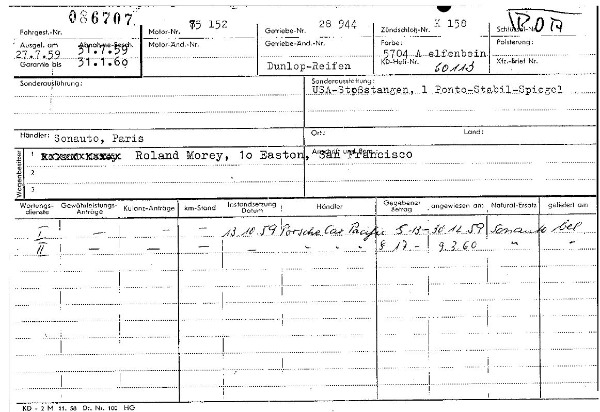 Fahrgest.-Nr. 086707 Motor-Nr. 75 152 Getriebe-Nr. 28 944 Zündschloß-Nr. X 150 Schlüssel-Nr.
Ausgel. am 27.7.59 Abnahme-Besch. 31.7.59 Motor-Änd.-Nr. Getriebe-Änd.-Nr. Farbe: 5704 A elfenbein Polsterung:
Garantie bis 31.1.60 Dunlop-Reifen KD-Heft-Nr. 60113 Kfz.-Brief Nr.
Sonderausführung: Sonderausstattung:
USA-Stoßstangen, 1 Ponto-Stabil-Spiegel
Händler: Sonauto, Paris Ort: Land:
Wagenbesitzer 1 Roland Morey, 1o Easton, San Francisco
2
3
Wartungsdienste Gewährleistungs-Anträge Kulanz-Anträge km-Stand Instandsetzung Datum Händler Gegebenz. Betrag angewiesen am: Natural-Ersatz geliefert am
I — — — 13.10.59 Porsche Car Pacific 5.13- 30.12.59 Sonauto
II — — — " " $ 17.- 9.2.60 " "
KD - 2 M 11. 58 Dr. Nr. 100 HG